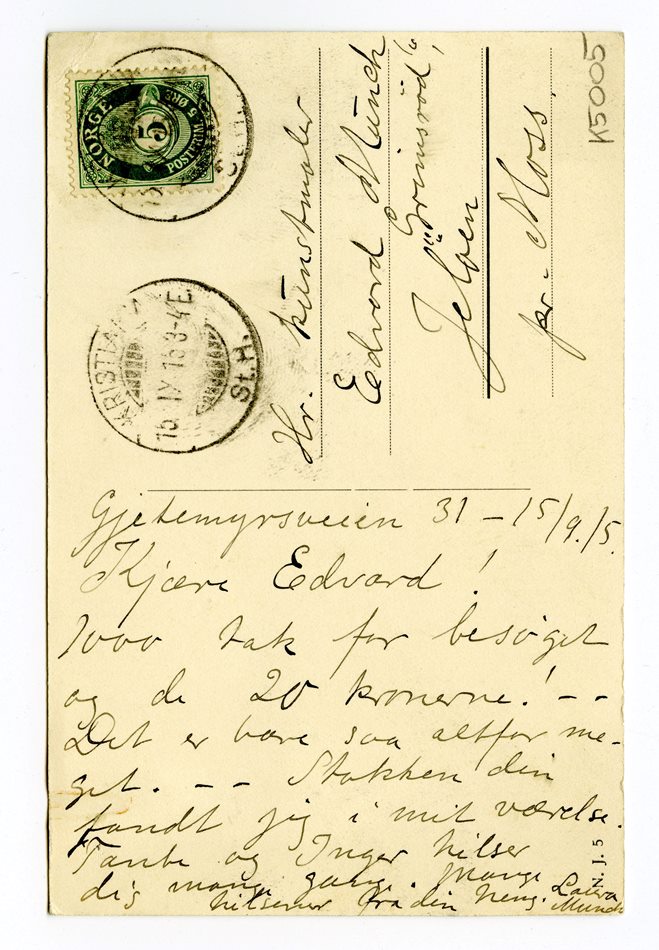 K5005
NORGE
POSTFRIM. 5 ØRE
5
KRISTIANIA
15 IX 15 3-4E
St.H.
Hr. Kunstmaler
Edvard Munch
Grimsröd
Jelöen
pr. Moss.
Gjetemyrsveien 31 – 15/9./5.
Kjære Edvard!
1000 tak for besøget
og de 20 kronerne! – –
Det er bare saa altfor me-
get. – – Stokken din
fandt jeg i mit værelse.
Tante og Inger hilser
dig mange gange. Mange
hilsener fra din heng. Laura
Munch
N. J. 5